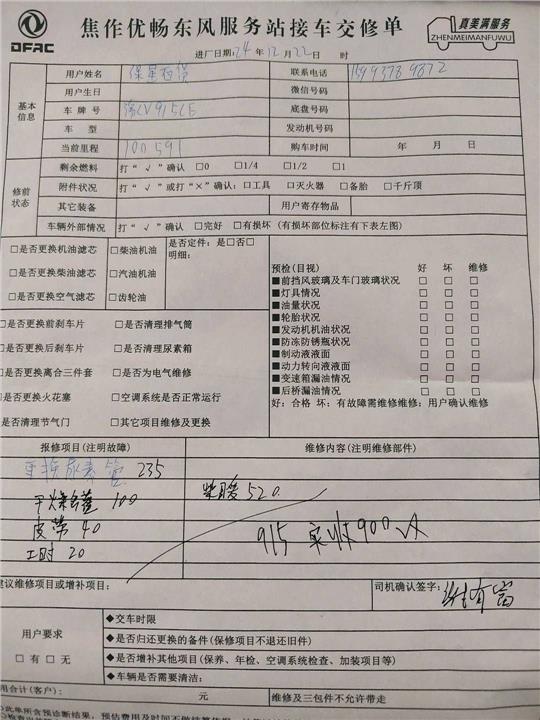 DFAC
焦作优畅东风服务站接车交修单
真美满服务
ZHENMEIMANFUWU
进厂日期:24年12月22日 时
基本信息
用户姓名
联系电话
用户生日
微信号码
车牌号 豫CV915LE
底盘号
车 型
发动机号码
当前里程 100591
购车时间 年 月 日
修前状态
剩余燃料 打“√”确认 □0 □1/4 □1/2 □1
附件状况 打“√”或打“×”确认:□工具 □灭火器 □备胎 □千斤顶
其它装备
用户寄存物品
车辆外部情况 打“√”确认 □完好 □有损坏(有损坏部位标注有下表左图)
□是否更换机油滤芯 □柴油机油
□是否更换柴油滤芯 □汽油机油
□是否更换空气滤芯 □齿轮油
是否定件:是□否□
明细:
□是否更换前刹车片 □是否清理排气筒
□是否更换后刹车片 □是否清理尿素箱
□是否更换离合三件套 □是否为电气维修
□是否更换火花塞 □空调系统是否正常运行
是否清理节气门 □其它项目维修及更换
预检(目视) 好 坏 维修
■前挡风玻璃及车门玻璃状况 □ □ □
■灯具情况 □ □ □
■油量状况 □ □ □
■轮胎状况 □ □ □
■发动机机油状况 □ □ □
■防冻防锈瓶状况 □ □ □
■制动液液面 □ □ □
■动力转向液液面 □ □ □
■变速箱漏油情况 □ □ □
■后桥漏油情况 □ □ □
好:合格 坏:有故障需维修维修:用户确认维修
报修项目(注明故障) 维修内容(注明维修部件)
更换尿素管 235
100 柴暖 520
皮带 40
915 实收900
工时 20
建议维修项目或增补项目:
司机确认签字:
用户要求
□有 □无
◆交车时限
◆是否归还更换的备件(保修项目不退还旧件)
◆是否增补其他项目(保养、年检、空调系统检查、加装项目等)
◆车辆是否需要清洁:
用合计(客户): 元 维修及三包件不允许带走